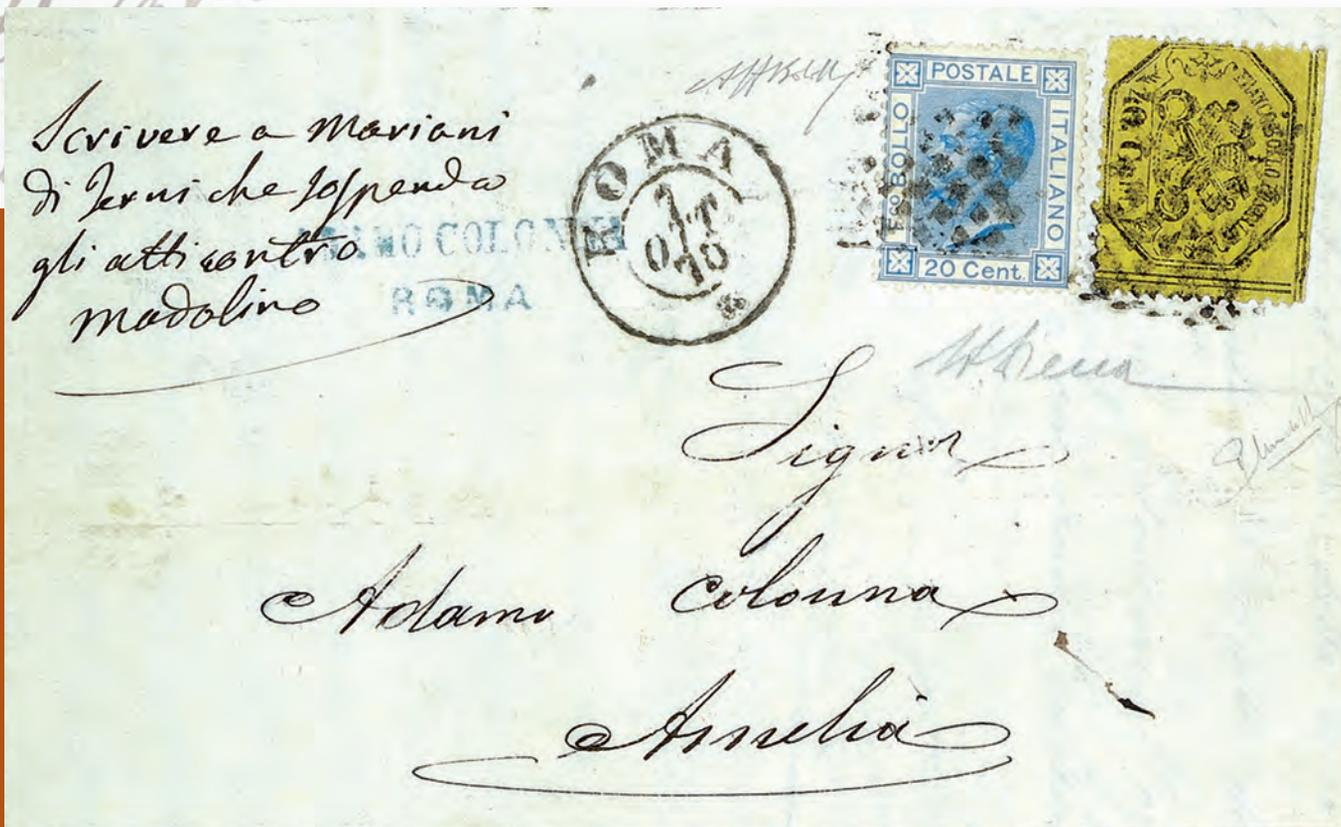 Scrivere a Mariani
di Terni che sospenda
gli atti contro
Madolino
ADAMO COLONNA
ROMA
ROMA
7
OTT
70
POSTALE
ITALIANO
Fco BOLLO
20 Cent.
FRANCOBOLLO POSTALE
Signor
Adamo Colonna
Amelia